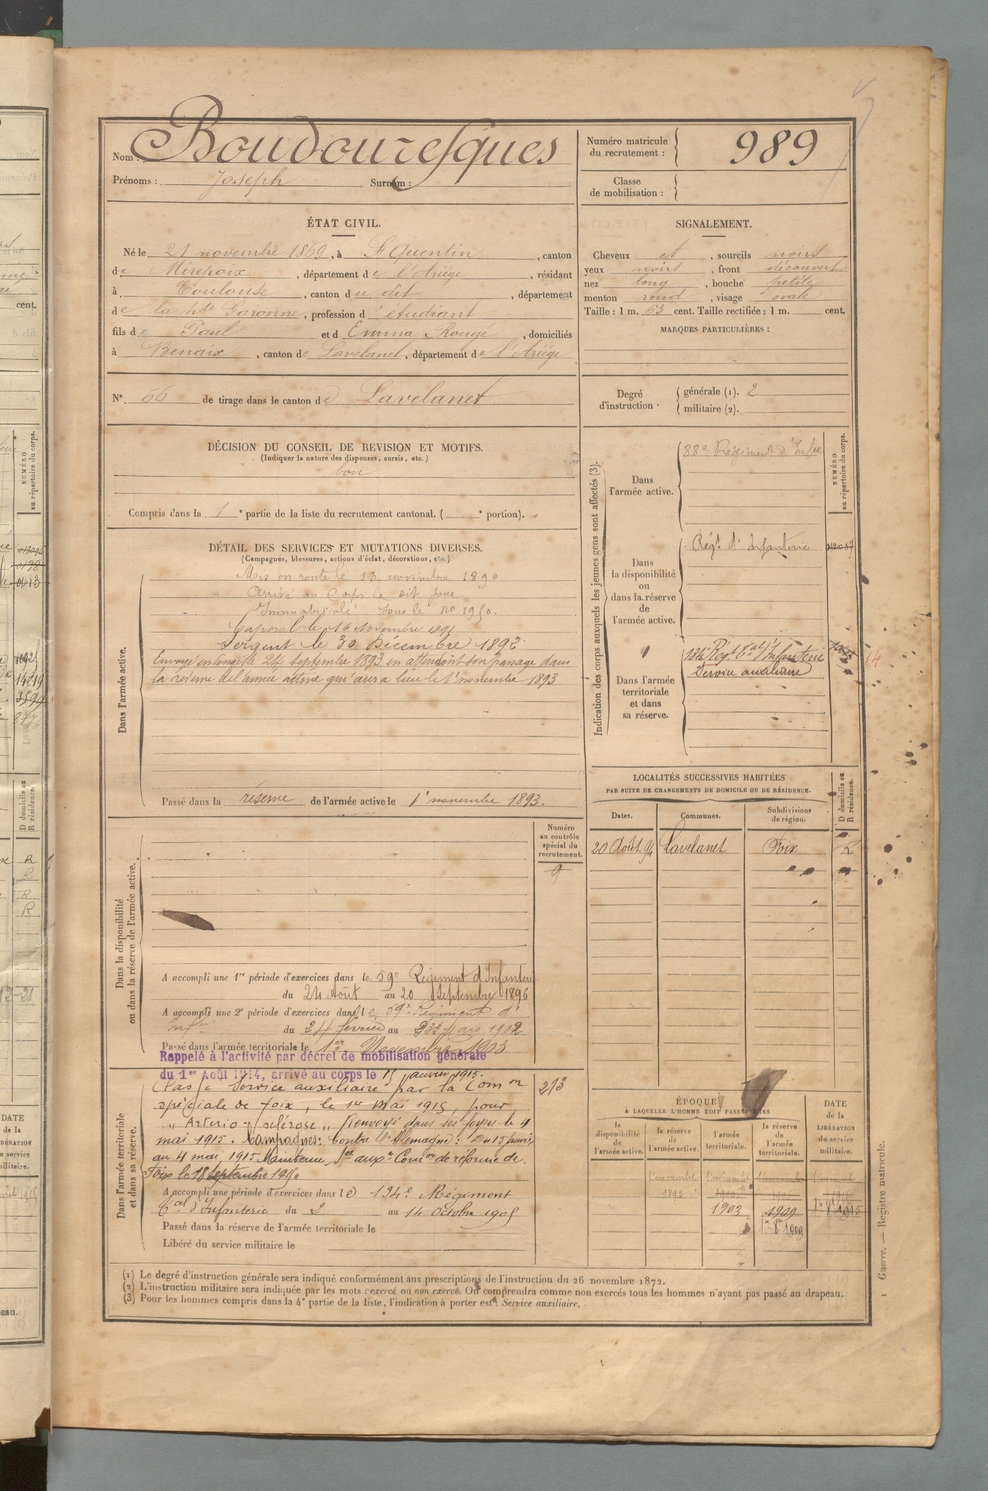 Nom : Boudouresques
Prénoms : Joseph Surnom :
Numéro matricule du recrutement : 989
Classe de mobilisation :
ÉTAT CIVIL.
Né le 21 novembre 1869, à St Quentin, canton
de Mirepoix, département de l'Ariège, résidant
à Toulouse, canton du dit, département
de la Hte Garonne, profession d étudiant
fils de Paul et d Emma Rougé, domiciliés
à Benaix, canton de Lavelanet, département de l'Ariège
SIGNALEMENT.
Cheveux et, sourcils noirs
yeux noirs, front découvert
nez long, bouche petite
menton rond, visage ovale
Taille : 1 m. 63 cent. Taille rectifiée : 1 m. cent.
MARQUES PARTICULIÈRES :
N° 66 de tirage dans le canton de Lavelanet
Degré d'instruction
générale (1). 2
militaire (2).
DÉCISION DU CONSEIL DE REVISION ET MOTIFS.
(Indiquer la nature des dispenses, sursis, etc.)
bon
Compris dans la 1e partie de la liste du recrutement cantonal. ( e portion).
DÉTAIL DES SERVICES ET MUTATIONS DIVERSES.
(Campagnes, blessures, actions d'éclat, décorations, etc.)
Dans l'armée active.
Mis en route le 13 novembre 1890
Arrivé au Corps le dit jour
Immatriculé sous le no 1950.
Caporal le 16 Novembre 1891
Sergent le 30 Décembre 1892
Envoyé en congé le 24 septembre 1893 en attendant son passage dans
la réserve de l'armée active qui aura lieu le 1er novembre 1893
Passé dans la réserve de l'armée active le 1er novembre 1893.
Indication des corps auxquels les jeunes gens sont affectés (3).
NUMÉRO au répertoire du corps.
Dans l'armée active.
88e Régiment d'Infrie
Dans la disponibilité ou dans la réserve de l'armée active.
Régt d'Infanterie
Dans l'armée territoriale et dans sa réserve.
134e Régt Tal d'Infanterie
Service auxiliaire
LOCALITÉS SUCCESSIVES HABITÉES
PAR SUITE DE CHANGEMENTS DE DOMICILE OU DE RÉSIDENCE.
Dates. Communes. Subdivisions de région. D domicile ou R résidence.
20 Août 94 Lavelanet Foix R
Numéro au contrôle spécial du recrutement.
9
Dans la disponibilité ou dans la réserve de l'armée active.
A accompli une 1re période d'exercices dans le 59e Régiment d'Infanterie
du 24 Août au 20 Septembre 1896
A accompli une 2e période d'exercices dans le 59e Régiment d'
Infie du 24 février au
Passé dans l'armée territoriale le 1er Novembre 1903
Rappelé à l'activité par décret de mobilisation générale
du 1er Août 1914, arrivé au corps le 15 janvier 1915.
Dans l'armée territoriale et dans sa réserve.
Classé Service auxiliaire par la Comon 213
spéciale de Foix, le 1er Mai 1915, pour
" Artério-sclérose " Renvoyé dans ses foyers le 4
mai 1915. Campagnes: Contre l'Allemagne : du 15 janvier
au 4 mai 1915. Maintenu Sce auxre Comon de réforme de
Foix le 18 septembre
A accompli une période d'exercices dans le 134e Régiment
Tal d'Infanterie du 2 au 14 Octobre 1905
Passé dans la réserve de l'armée territoriale le
Libéré du service militaire le
ÉPOQUE
À LAQUELLE L'HOMME DOIT PASSER DANS
la disponibilité de l'armée active.
la réserve de l'armée active.
l'armée territoriale.
la réserve de l'armée territoriale.
DATE de la LIBÉRATION du service militaire.
1893
1903
1909
(1) Le degré d'instruction générale sera indiqué conformément aux prescriptions de l'instruction du 26 novembre 1872.
(2) L'instruction militaire sera indiquée par les mots : exercé ou non exercé. On comprendra comme non exercés tous les hommes n'ayant pas passé au drapeau.
(3) Pour les hommes compris dans la 4e partie de la liste, l'indication à porter est : Service auxiliaire.
1 Guerre. — Registre matricule.